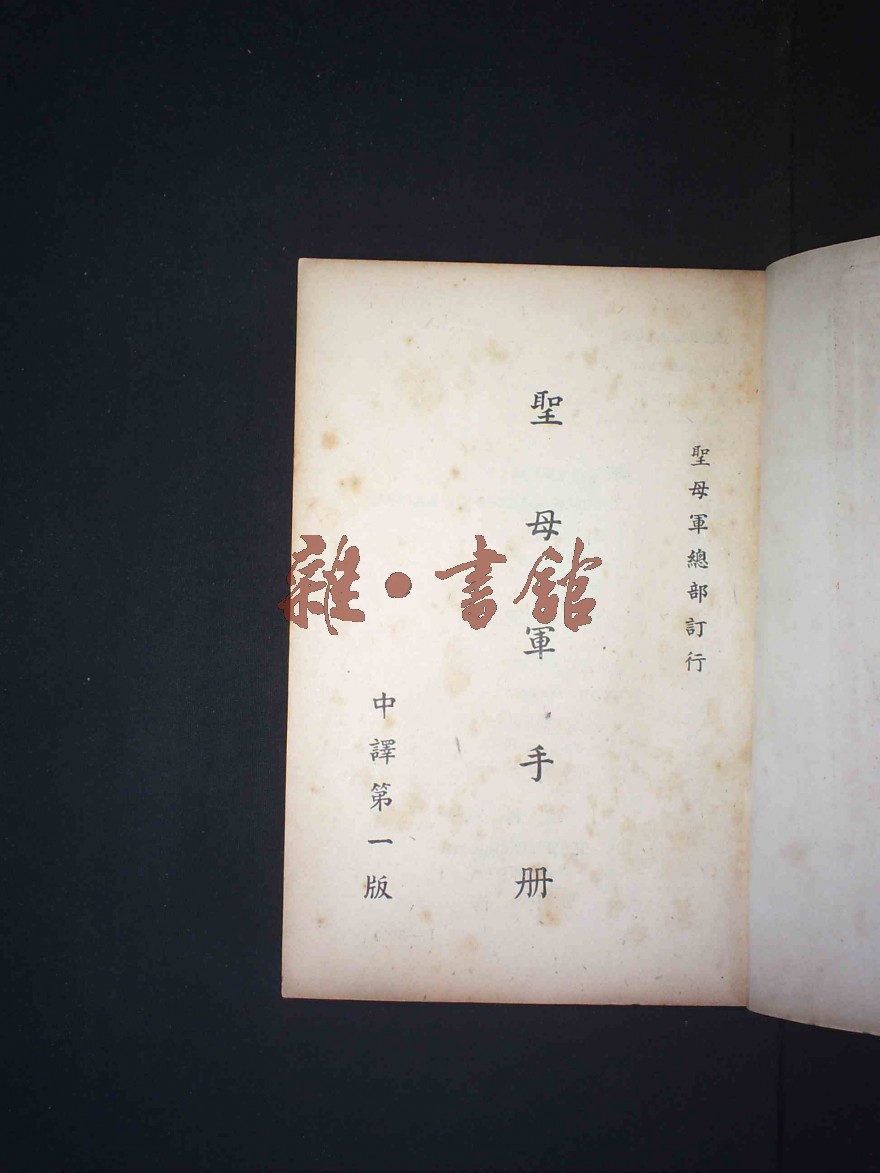 聖母軍總部訂行
聖母軍手册
中譯第一版
雜·書館